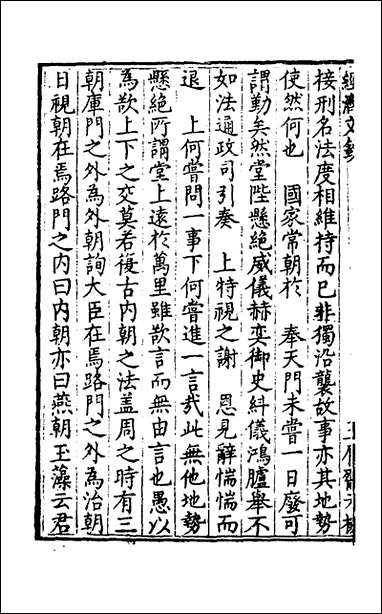 經濟文鈔
接刑名法度相維持而已非獨沿襲故事亦其地勢
使然何也　國家常朝於　奉天門未嘗一日廢可
謂勤矣然堂陛懸絕威儀赫奕御史糾儀鴻臚舉不
如法通政司引奏　上特視之謝　恩見辭惴惴而
退　上何嘗問一事下何嘗進一言哉此無他地勢
懸絕所謂堂上遠於萬里雖欲言而無由言也愚以
為欲上下之交莫若復古內朝之法蓋周之時有三
朝庫門之外為外朝詢大臣在焉路門之外為治朝
日視朝在焉路門之內曰內朝亦曰燕朝玉藻云君